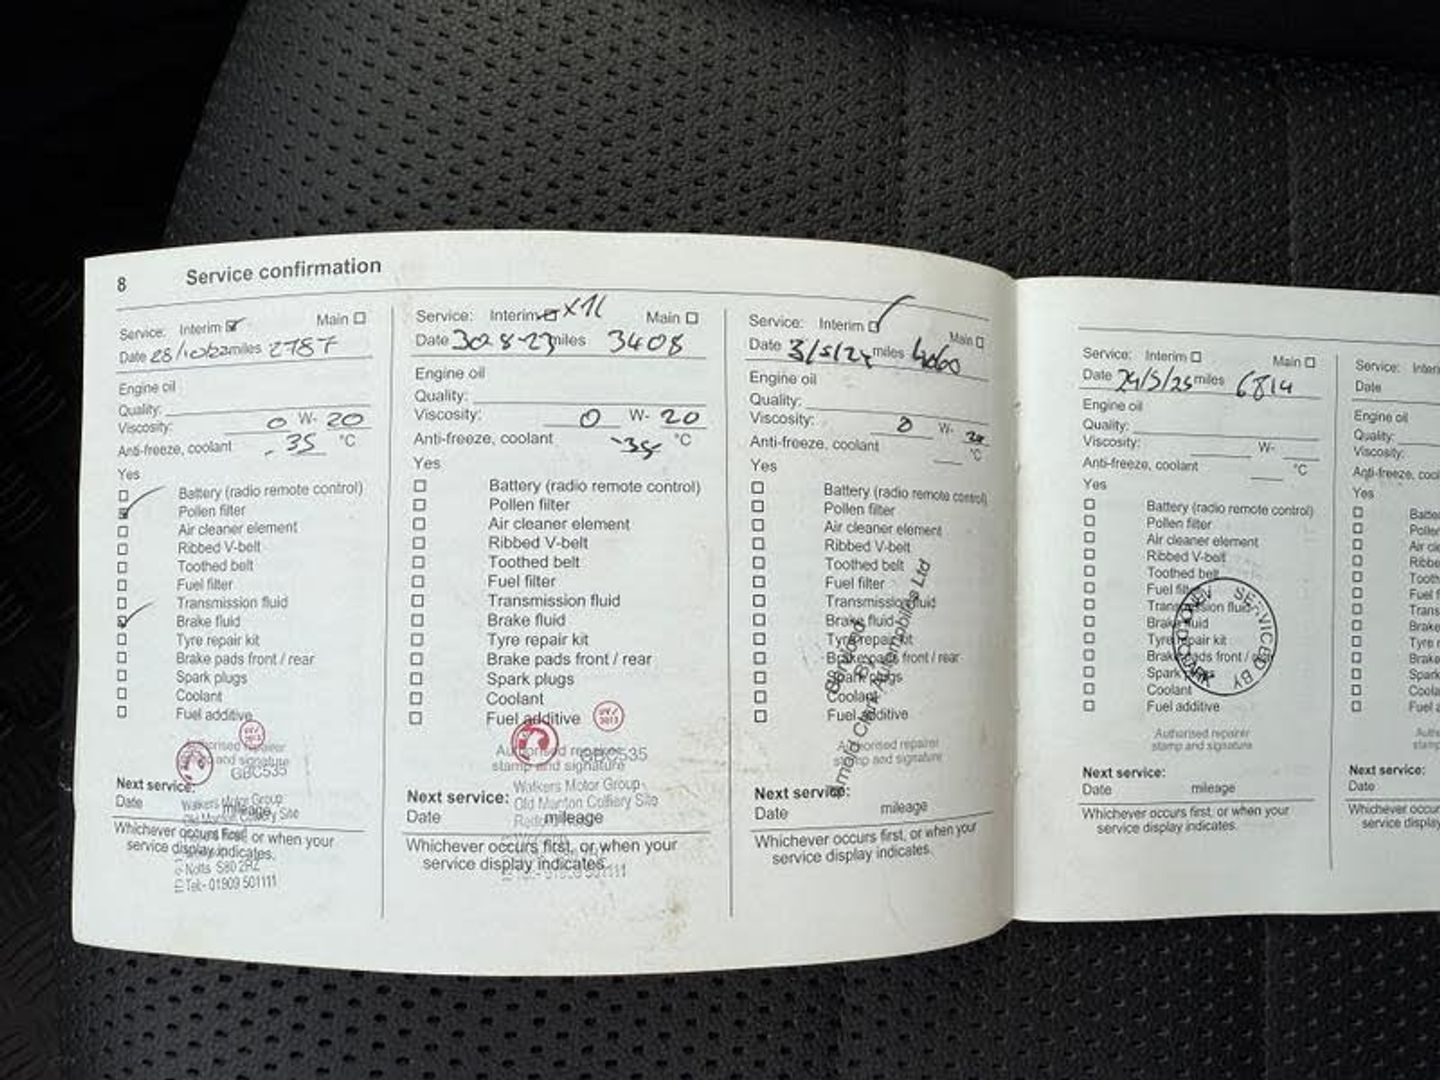 8 Service confirmation
Service: Interim Main
Date 28/10/22 miles 2787
Engine oil
Quality:
Viscosity: 0 W- 20
Anti-freeze, coolant -35 °C
Yes
Battery (radio remote control)
Pollen filter
Air cleaner element
Ribbed V-belt
Toothed belt
Fuel filter
Transmission fluid
Brake fluid
Tyre repair kit
Brake pads front / rear
Spark plugs
Coolant
Fuel additive
Authorised repairer
stamp and signature
GBC535
Next service:
Walkers Motor Group
Date mileage
Old Manton Colliery Site
Whichever occurs first, or when your
service display indicates.
Notts S80 2RZ
Tel:- 01909 501111
Service: Interim X1L Main
Date 30 8-23 miles 3408
Engine oil
Quality:
Viscosity: 0 W- 20
Anti-freeze, coolant -35 °C
Yes
Battery (radio remote control)
Pollen filter
Air cleaner element
Ribbed V-belt
Toothed belt
Fuel filter
Transmission fluid
Brake fluid
Tyre repair kit
Brake pads front / rear
Spark plugs
Coolant
Fuel additive
Authorised repairer
stamp and signature
GBC535
Walkers Motor Group
Next service: Old Manton Colliery Site
Date mileage
Whichever occurs first, or when your
service display indicates.
Service: Interim Main
Date 3/5/24 miles 4060
Engine oil
Quality:
Viscosity: 0 W- 20
Anti-freeze, coolant °C
Yes
Battery (radio remote control)
Pollen filter
Air cleaner element
Ribbed V-belt
Toothed belt
Fuel filter
Transmission fluid
Brake fluid
Tyre repair kit
Brake pads front / rear
Spark plugs
Coolant
Fuel additive
Serviced By
Arnold Clark Automobiles Ltd
Authorised repairer
stamp and signature
Next service:
Date mileage
Whichever occurs first, or when your
service display indicates.
Service: Interim Main
Date 24/5/25 miles 6814
Engine oil
Quality:
Viscosity: W-
Anti-freeze, coolant °C
Yes
Battery (radio remote control)
Pollen filter
Air cleaner element
Ribbed V-belt
Toothed belt
Fuel filter
Transmission fluid
Brake fluid
Tyre repair kit
Brake pads front / rear
Spark plugs
Coolant
Fuel additive
SERVICED BY
Authorised repairer
stamp and signature
Next service:
Date mileage
Whichever occurs first, or when your
service display indicates.
Service: Interi
Date
Engine oil
Quality:
Viscosity:
Anti-freeze, cool
Yes
Batte
Pollen
Air cle
Ribbe
Tooth
Fuel f
Trans
Brake
Tyre r
Brake
Spark
Coola
Fuel a
Auth
stamp
Next service:
Date
Whichever occur
service display